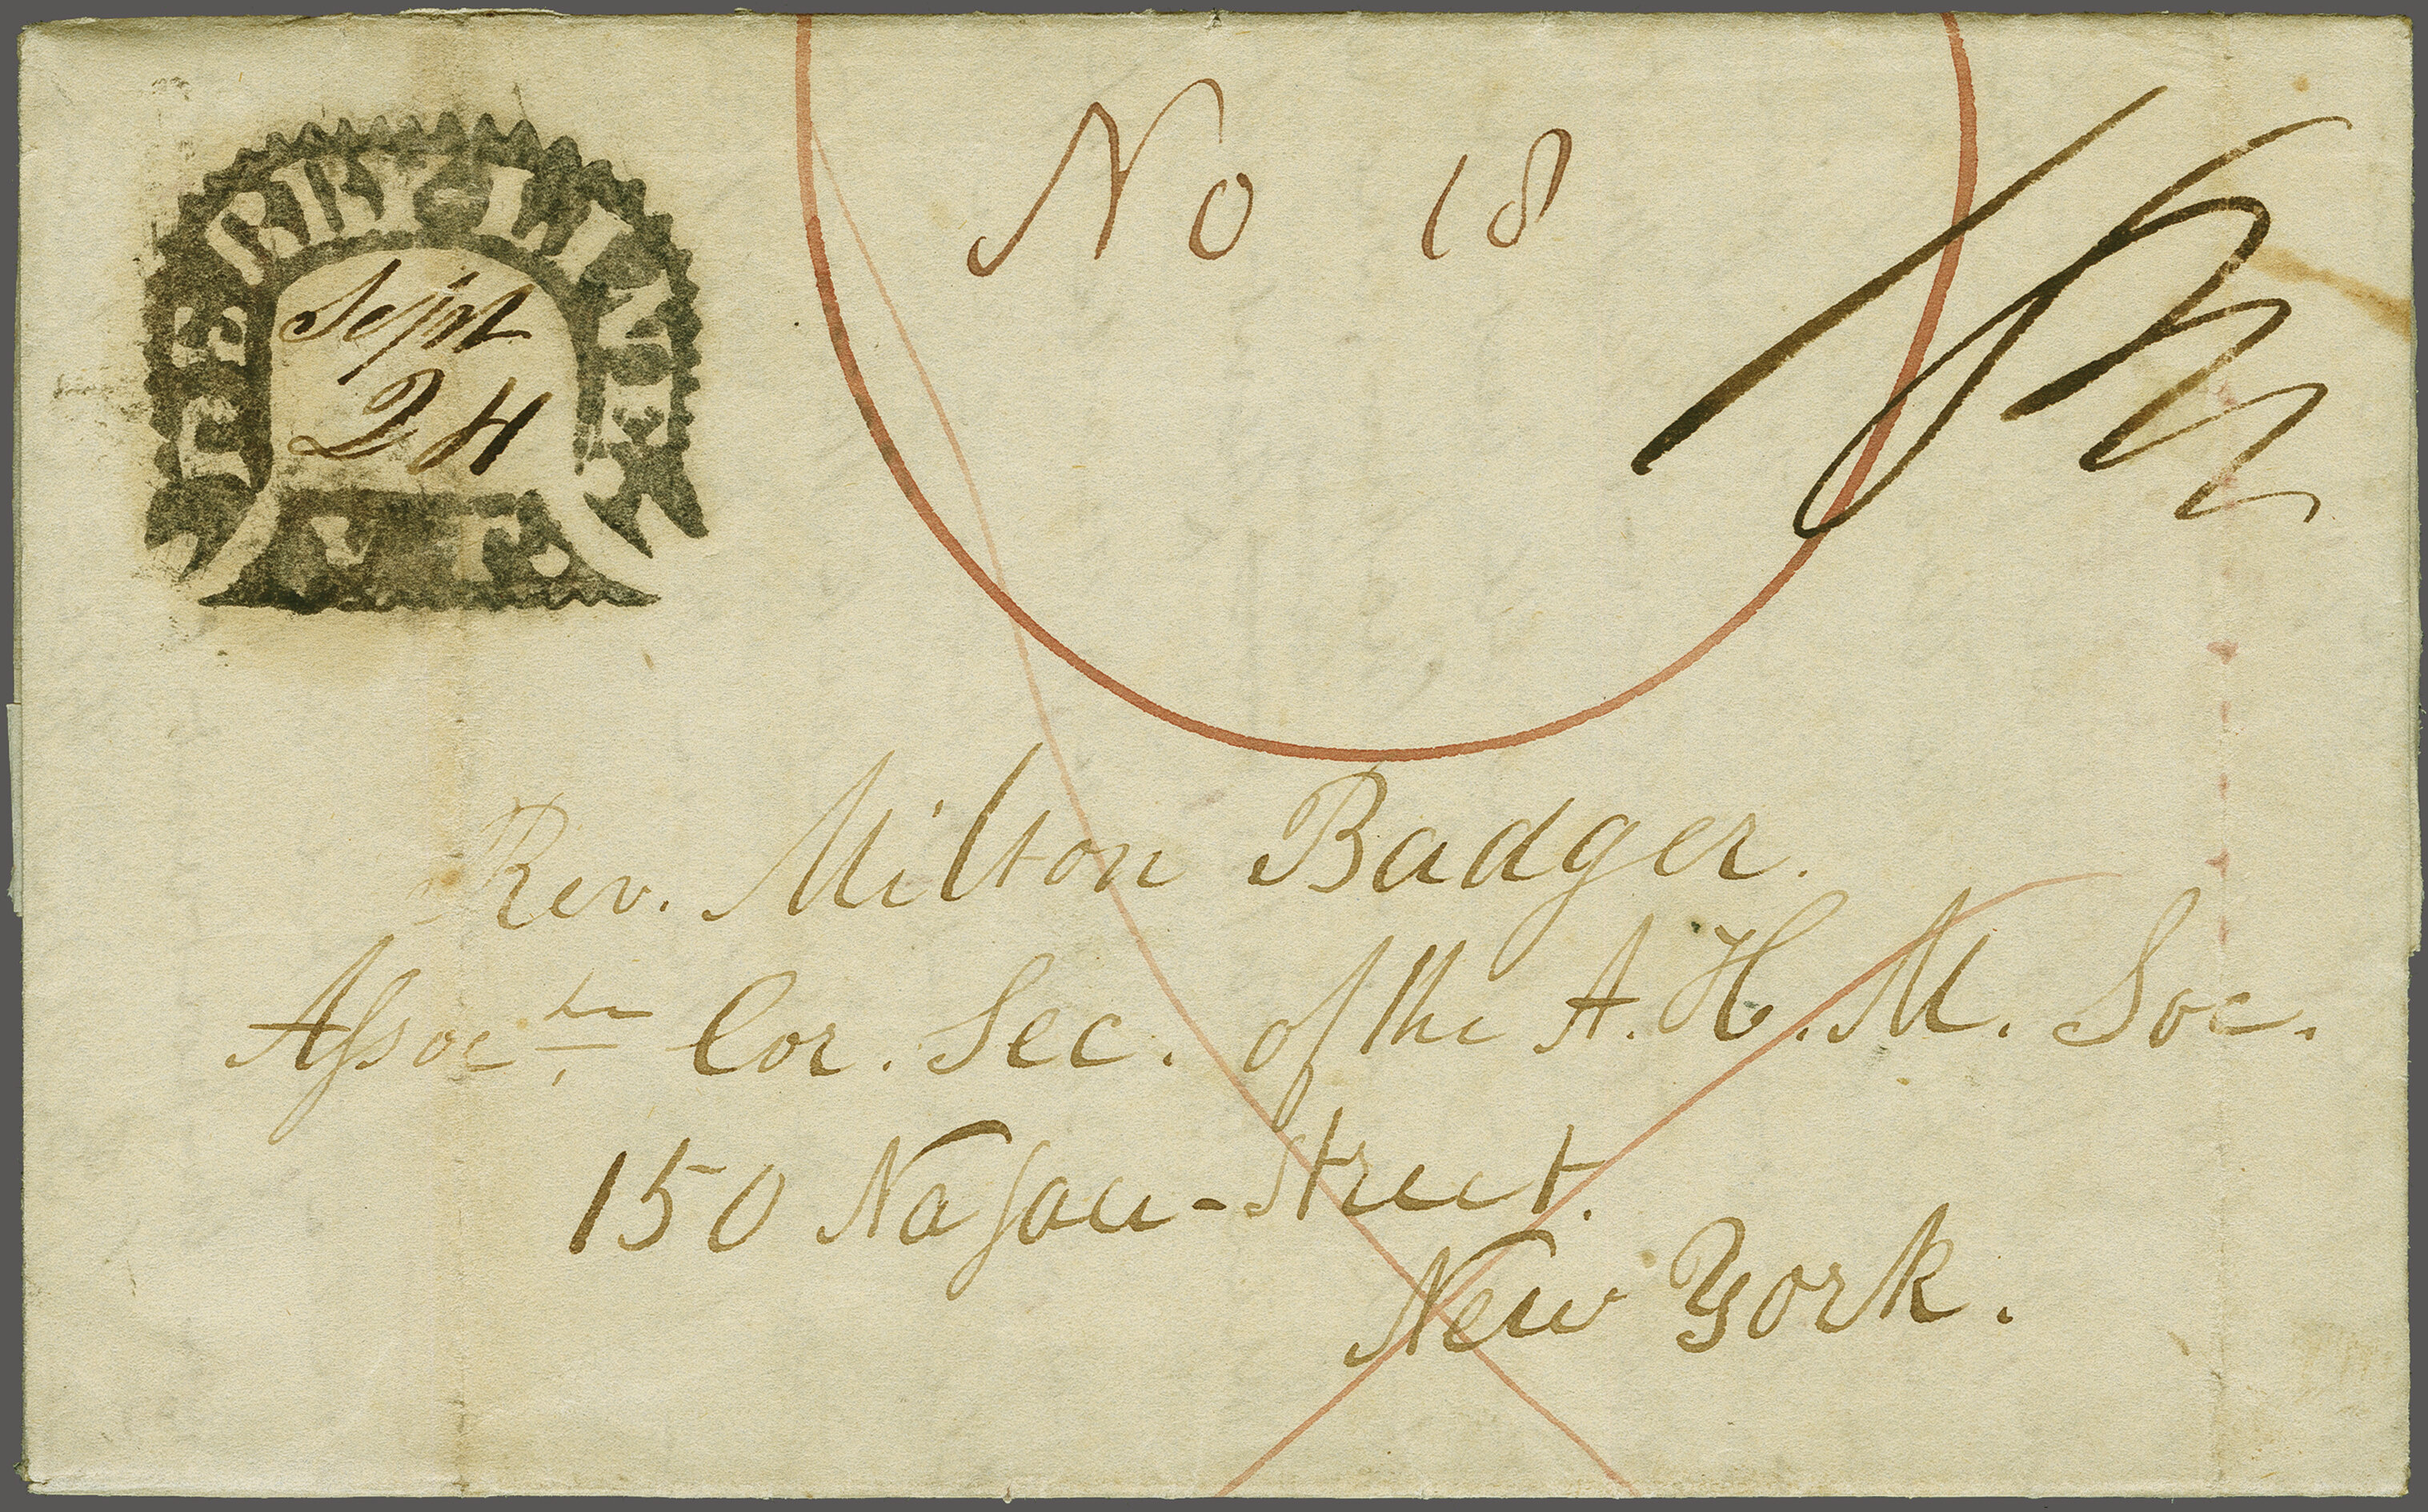 No 18
Sept
24
Rev. Milton Badger.
Aſsoc.te Cor. Sec. of the A. H. M. Soc.
150 Naſau-Street.
New York.